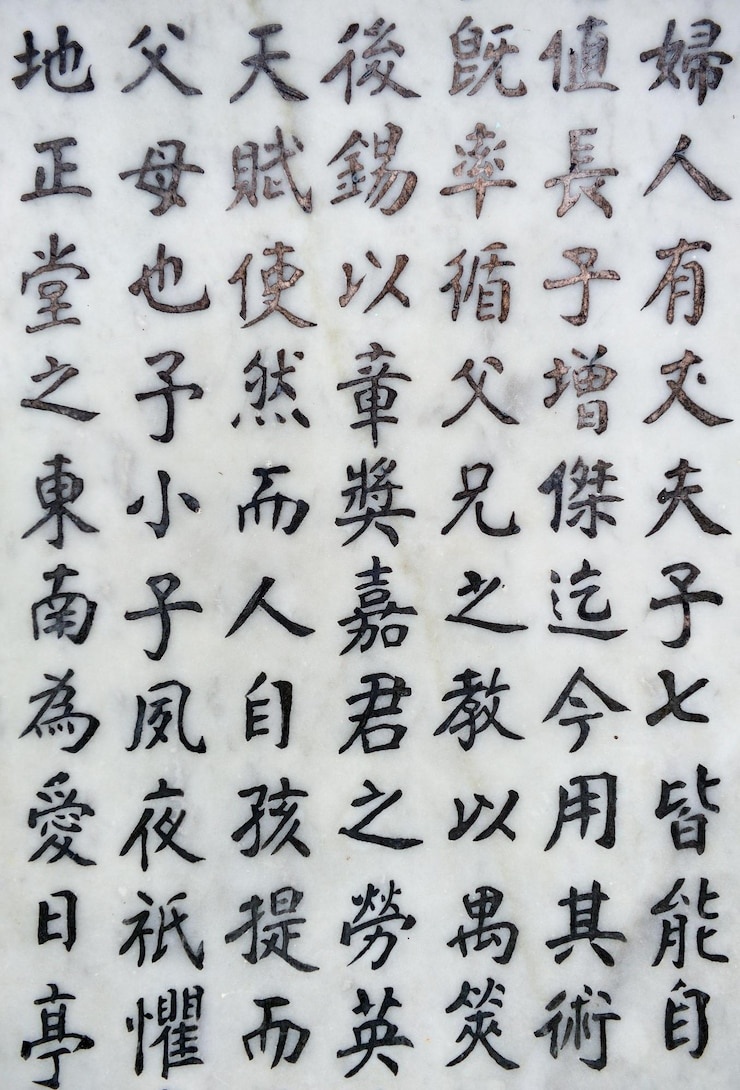 婦人有丈夫子七皆能自
値長子增傑迄今用其術
旣率循父兄之教以禺筴
後錫以章獎嘉君之勞英
天賦使然而人自孩提而
父母也予小子夙夜祇懼
地正堂之東南為愛日亭